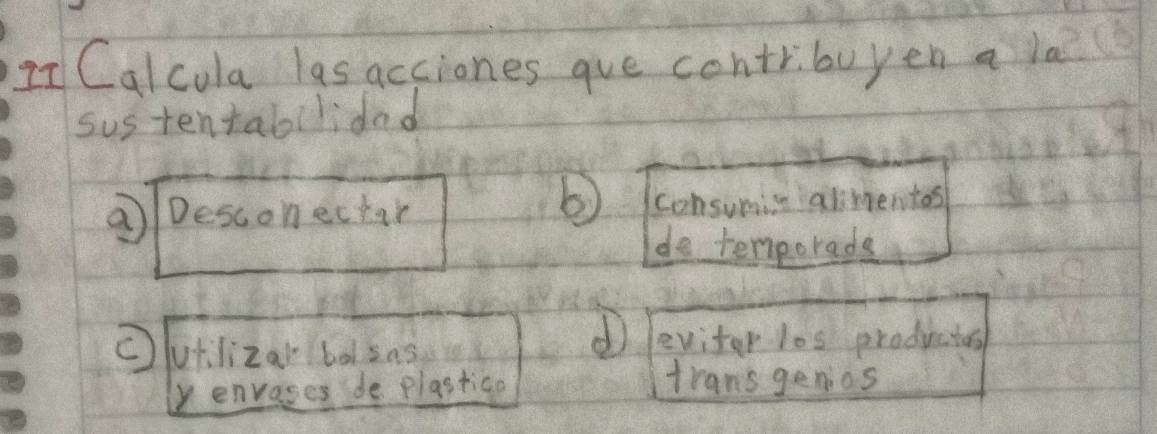 II Calcula las acciones que contribuyen a la
sustentabilidad
a) Desconectar
b) consumir alimentos
de temporada
c) utilizar bolsas
y envases de plastico
d) evitar los productos
transgenios